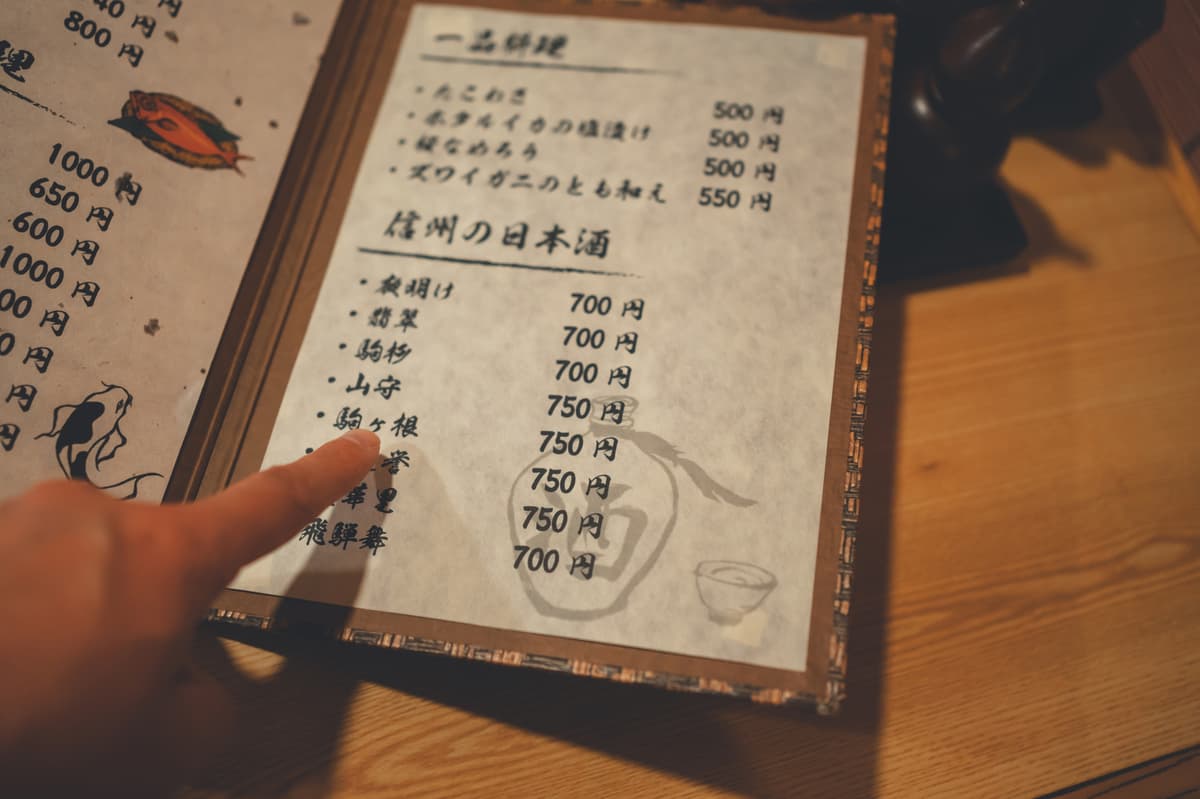 40 円
800 円
理
1000 円
650 円
600 円
1000 円
00 円
0 円
円
円
一品料理
・たこわさ 500 円
・ホタルイカの塩漬け 500 円
・鯵なめろう 500 円
・ズワイガニのとも和え 550 円
信州の日本酒
・夜明け 700 円
・翡翠 700 円
・駒杉 700 円
・山守 750 円
・駒ヶ根 750 円
誉 750 円
華里 750 円
飛騨舞 700 円
酒